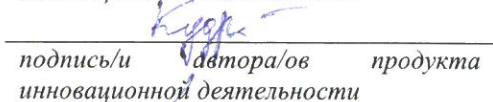 подпись/и автора/ов продукта
инновационной деятельности